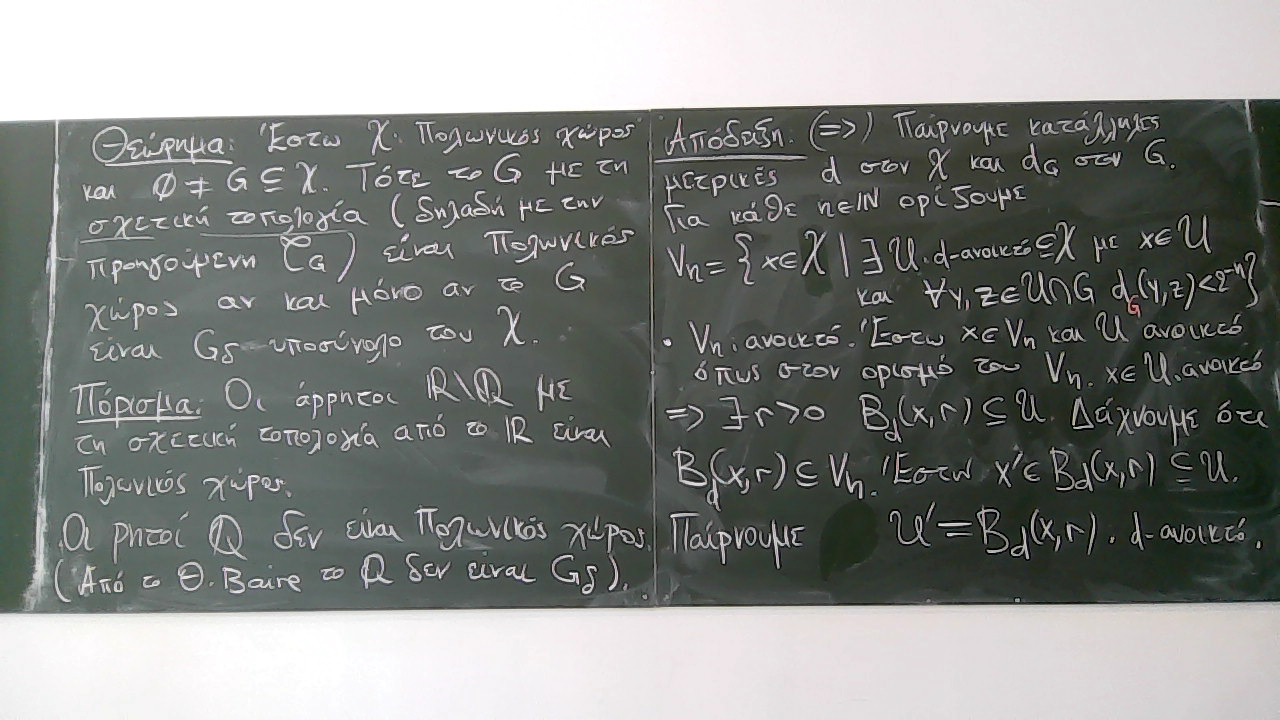 Θεώρημα: Έστω X. Πολωνικός χώρος
και ∅ ≠ G ⊆ X. Τότε το G με τη
σχετική τοπολογία (δηλαδή με την
προηγούμενη τ_G) είναι Πολωνικός
χώρος αν και μόνο αν το G
είναι G_δ υποσύνολο του X.
Πόρισμα: Οι άρρητοι ℝ\ℚ με
τη σχετική τοπολογία από το ℝ είναι
Πολωνικός χώρος.
Οι ρητοί ℚ δεν είναι Πολωνικός χώρος.
(Από το Θ. Baire το ℚ δεν είναι G_δ).
Απόδειξη. (=>) Παίρνουμε κατάλληλες
μετρικές d στον X και d_G στον G.
Για κάθε n∈ℕ ορίζουμε
V_n = {x∈X | ∃ U. d-ανοικτό ⊆ X με x∈U
και ∀y,z∈U∩G d_G(y,z)<2^{-n}}
• V_n. ανοικτό. Έστω x∈V_n και U ανοικτό
όπως στον ορισμό του V_n. x∈U. ανοικτό
=> ∃ r>0 B_d(x,r) ⊆ U. Δείχνουμε ότι
B_d(x,r) ⊆ V_n. Έστω x'∈B_d(x,r) ⊆ U.
Παίρνουμε U' = B_d(x,r). d-ανοικτό.